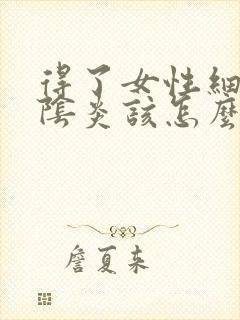 得了女性細
陰炎該怎麼
詹夏来